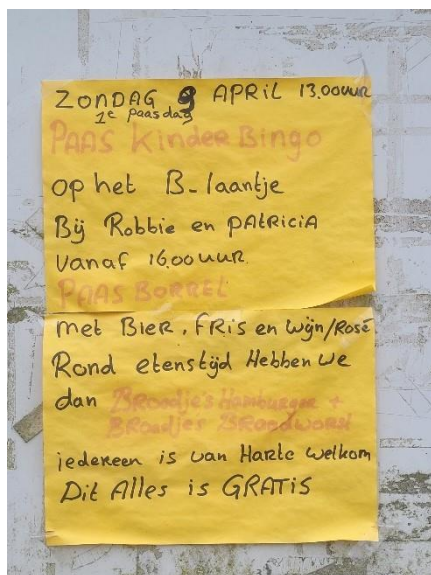 ZONDAG 9 APRIL 13.00uur
1e paasdag
PAAS KinderBingo
op het B-laantje
Bij Robbie en PAtRiCiA
vanaf 16.00 uur
PAAS BORREL
met Bier, FRis en Wijn/Rosé
Rond etenstijd Hebben we
dan BRoodje's Hamburger +
BRoodjes BRaadworst
iedereen is van Harte welkom
Dit Alles is GRATiS